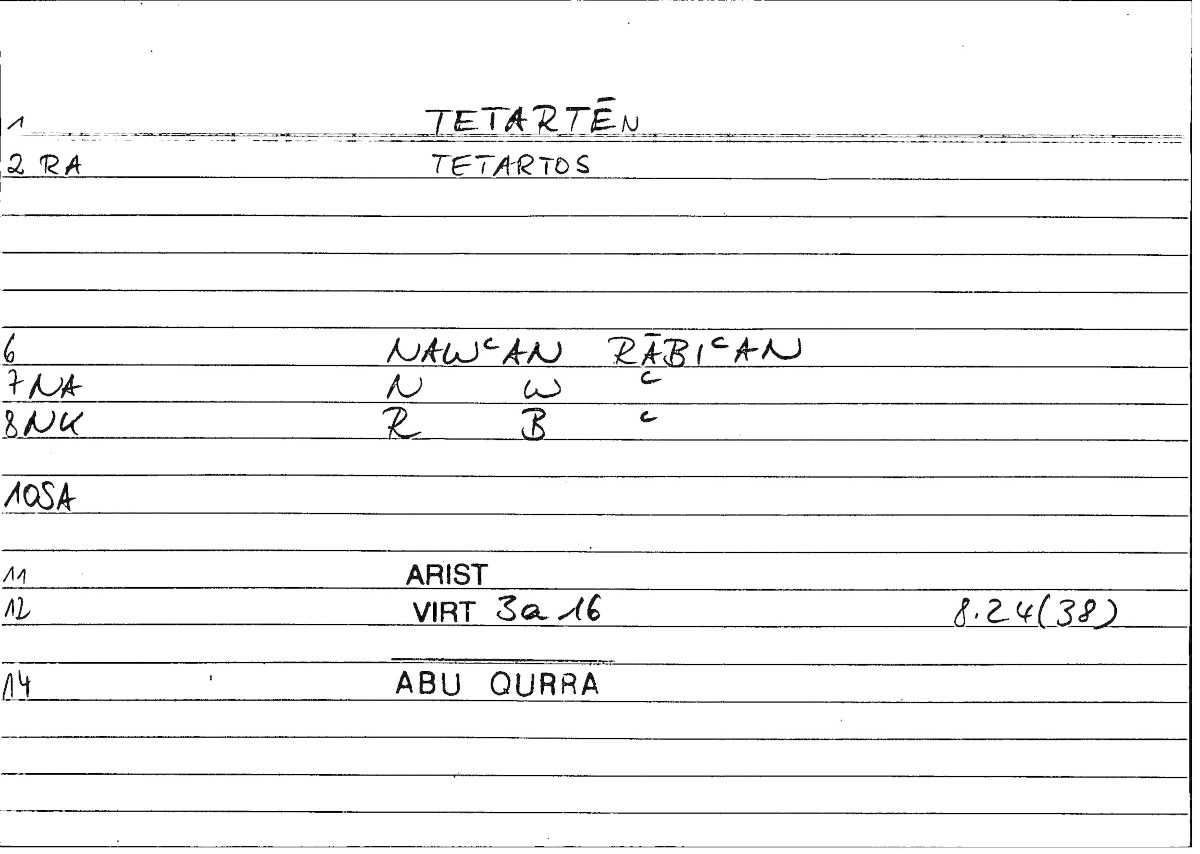 1 TETARTĒN
2 RA TETARTOS
6 NAWᶜAN RĀBIᶜAN
7 NA N W ᶜ
8 NK R B ᶜ
10 SA
11 ARIST
12 VIRT 3a 16 8.24(38)
14 ABU QURRA